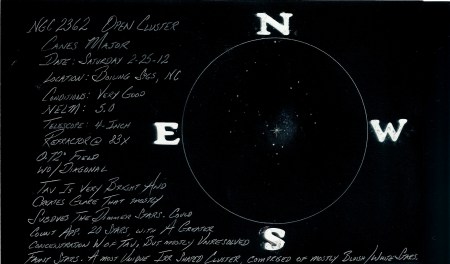 NGC 2362 OPEN CLUSTER
CANES MAJOR
DATE: SATURDAY 2-25-12
LOCATION: BOILING SPGS, NC
CONDITIONS: VERY GOOD
NELM: 5.0
TELESCOPE: 4-INCH
REFRACTOR @ 23X
0.72° FIELD
WO/DIAGONAL
TAU IS VERY BRIGHT AND
CREATES GLARE THAT MOSTLY
SUBDUES THE DIMMER STARS. COULD
COUNT APP. 20 STARS, WITH A GREATER
CONCENTRATION W OF TAU, BUT MOSTLY UNRESOLVED
FAINT STARS. A MOST UNIQUE IRR SHAPED CLUSTER, COMPRISED OF MOSTLY BLUISH/WHITE STARS.
N
E
W
S